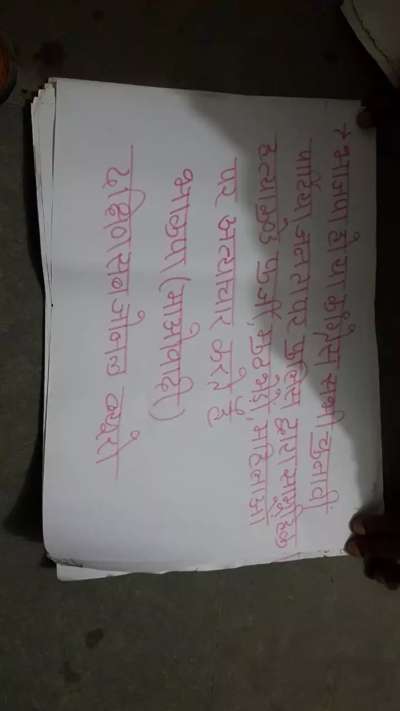 → भाजपा हो या कांग्रेस सभी चुनावी
पार्टियां जनता पर पुलिस द्वारा सामूहिक
हत्याकाण्ड फर्जी मुठभेड़ो, महिलाओं
पर अत्याचार करते है
भाकपा (माओवादी)
दक्षिण सब जोनल ब्यूरो